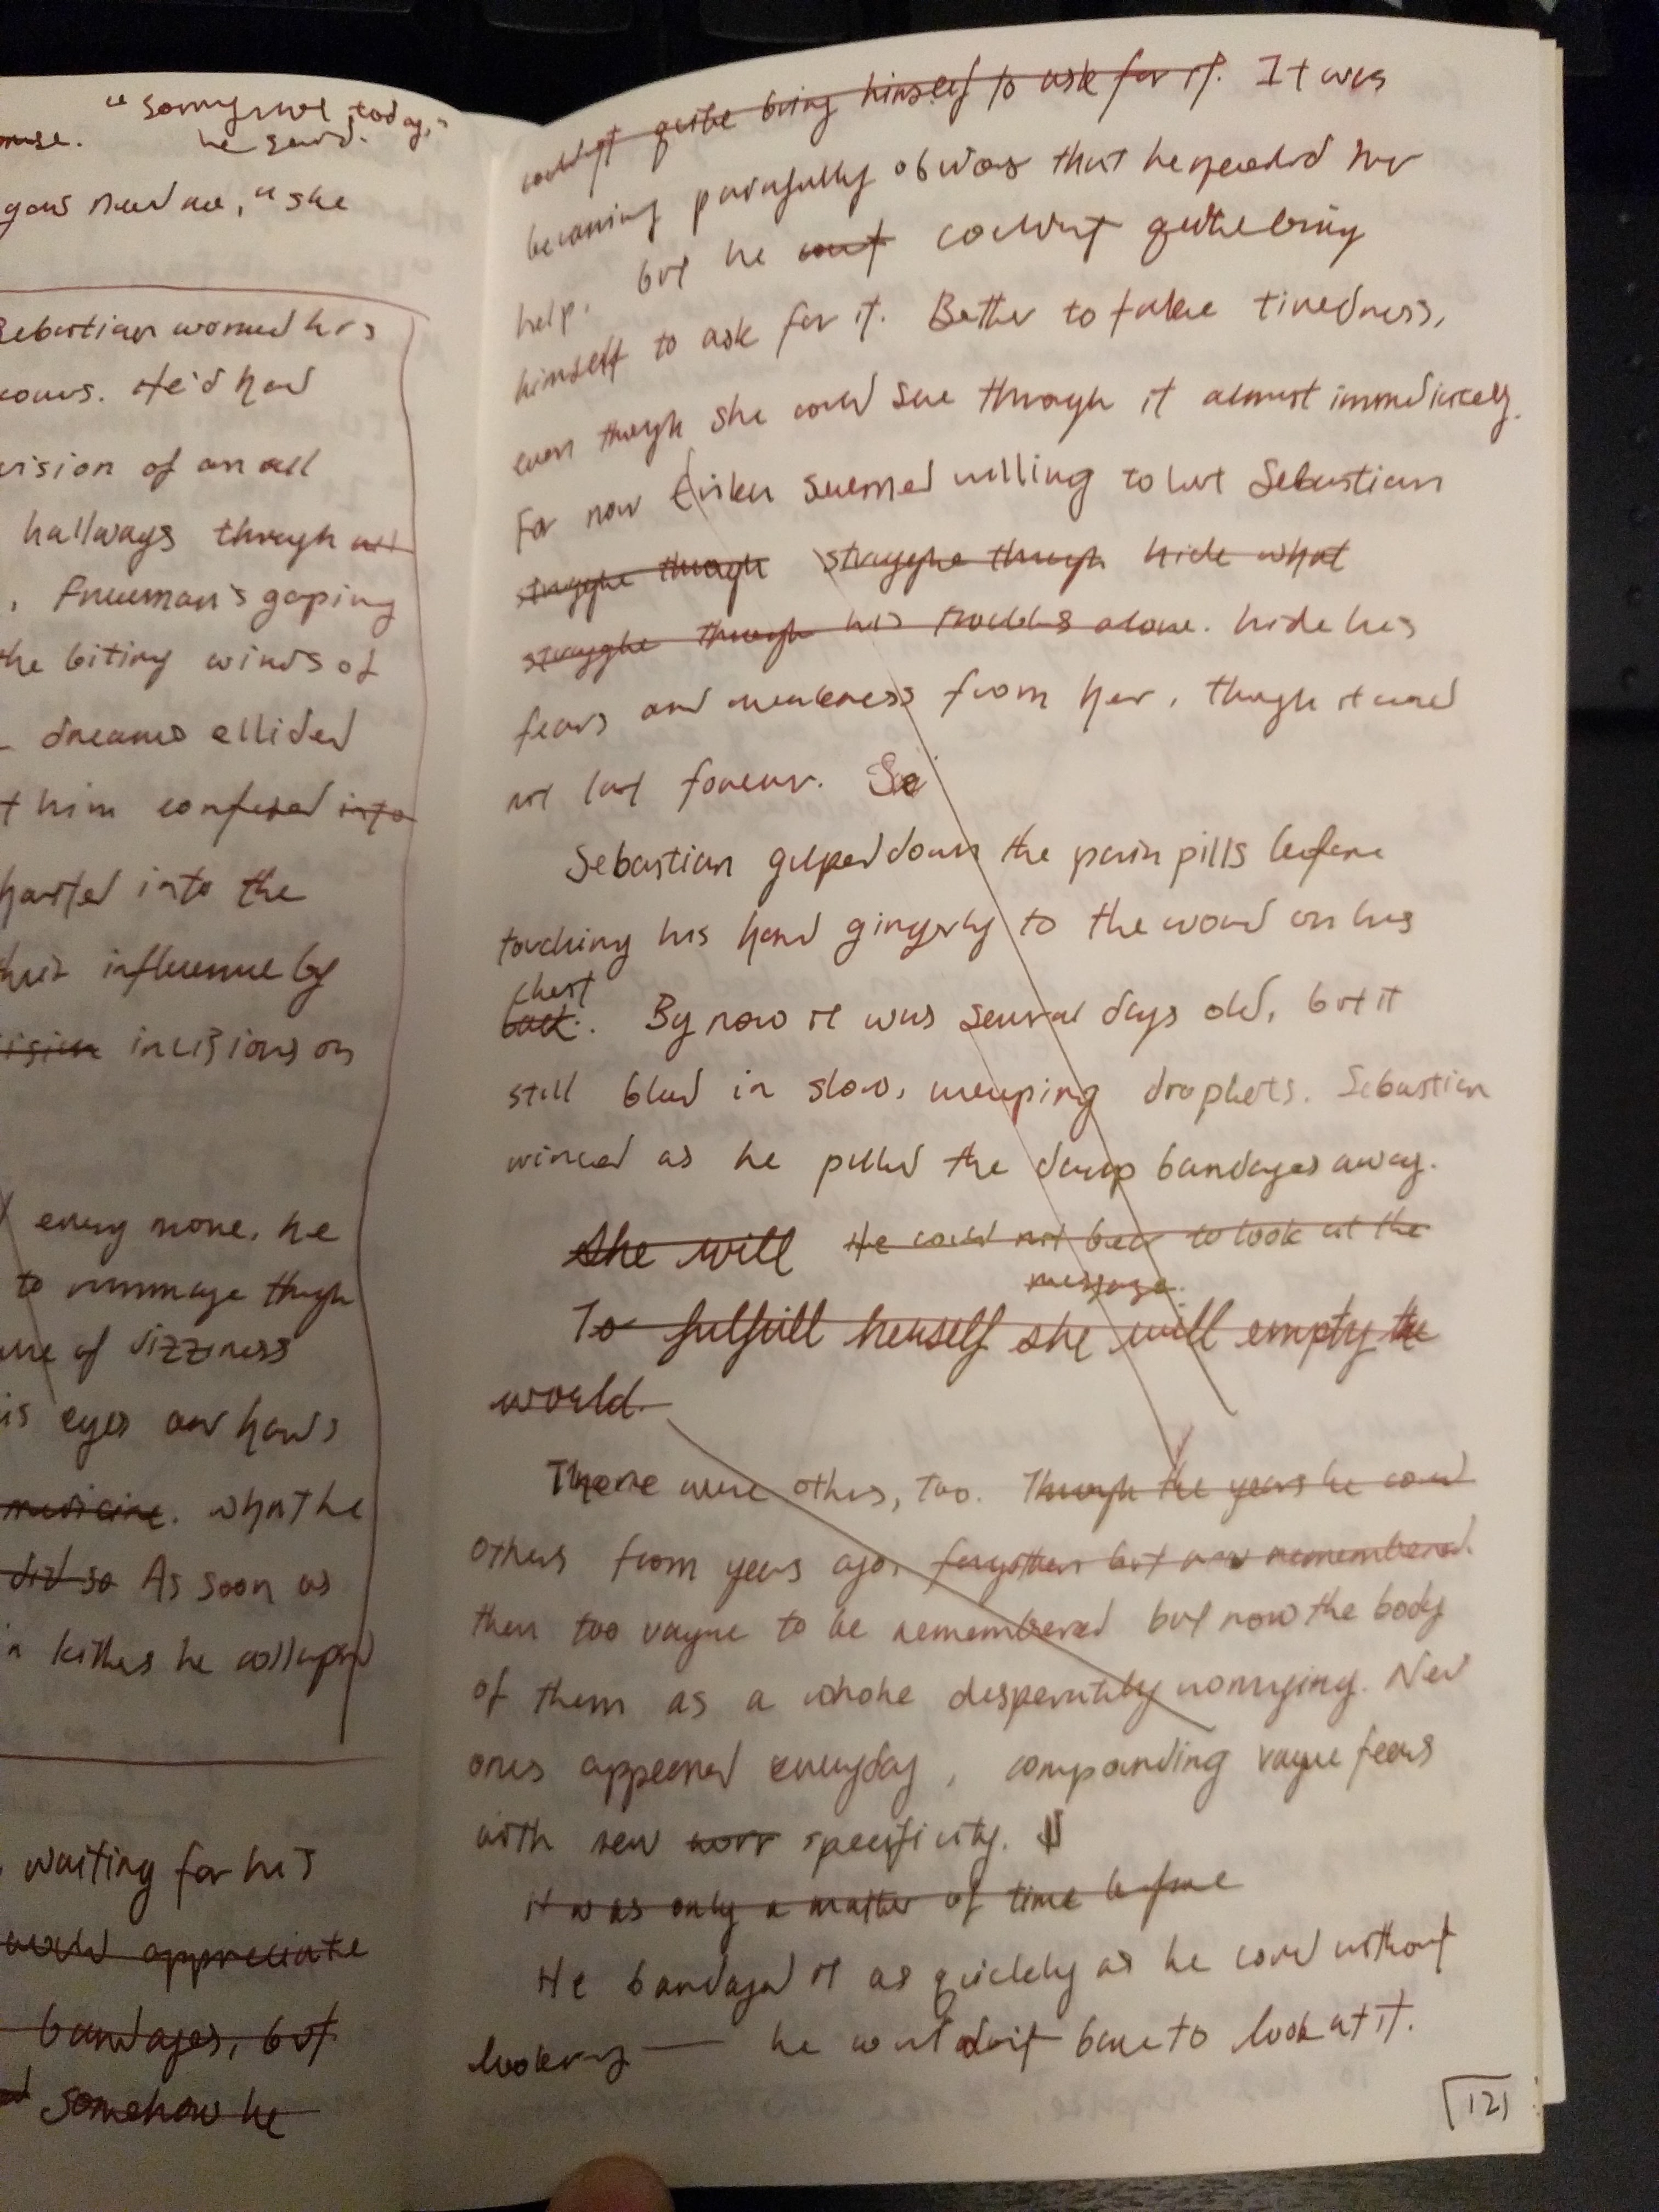 "Sorry, not today,"
he said.
gous need me," she
Sebastian worried his
He'd had
vision of an all
hallways through all
, Freeman's gaping
the biting winds of
dreams ellided
t him confused into
into the
influence by
incisions on
every none, he
to rummage though
of dizziness
is eyes and hands
medicine. when he
did so As soon as
killers he collapsed
waiting for his
would appreciate
bandages, but
somehow he
couldn't quite bring himself to ask for it. It was
becoming painfully obvious that he needed her
help. but he couldn't quite bring
himself to ask for it. Better to fake tiredness,
even though she could see through it almost immediately.
For now seemed willing to let Sebastian
struggle though struggle through hide what
struggle through his troubles alone. hide his
fears and weakness from her, though it could
not last forever. Se
Sebastian gulped down the pain pills before
touching his hand gingerly to the wound on his
chest
back. By now it was several days old, but it
still bled in slow, weeping droplets. Sebastian
winced as he pulled the damp bandages away.
She will He could not bear to look at the
message.
To fulfill herself she will empty the
world.
There were others, too. Through the years he could
others from years ago, forgotten but now remembered.
then too vague to be remembered but now the body
of them as a whole desperately worrying. New
ones appeared everyday, compounding vague fears
with new worr specificity.
it was only a matter of time before
He bandaged it as quickly as he could without
looking — he couldn't bare to look at it.
121